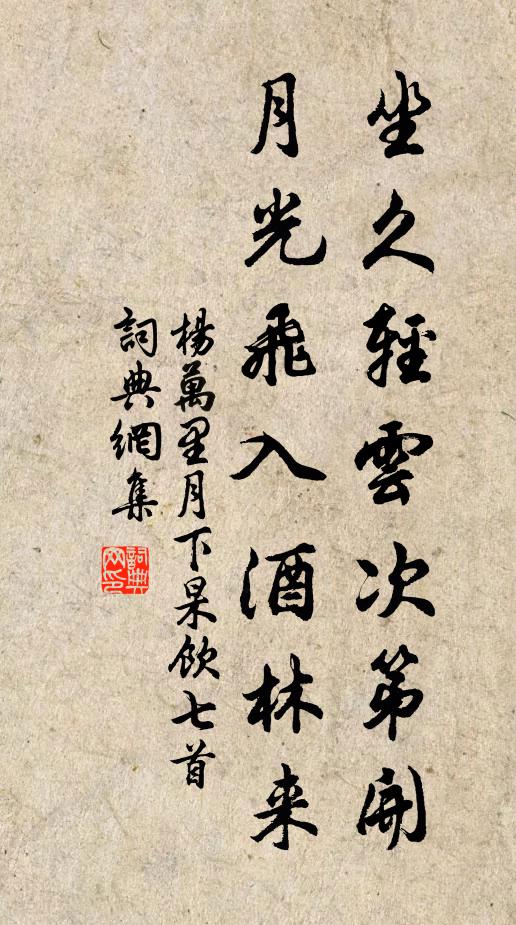 坐久輕雲次第開
月光飛入酒林来
楊萬里月下杲飲七首
詞典網集
詞典网印